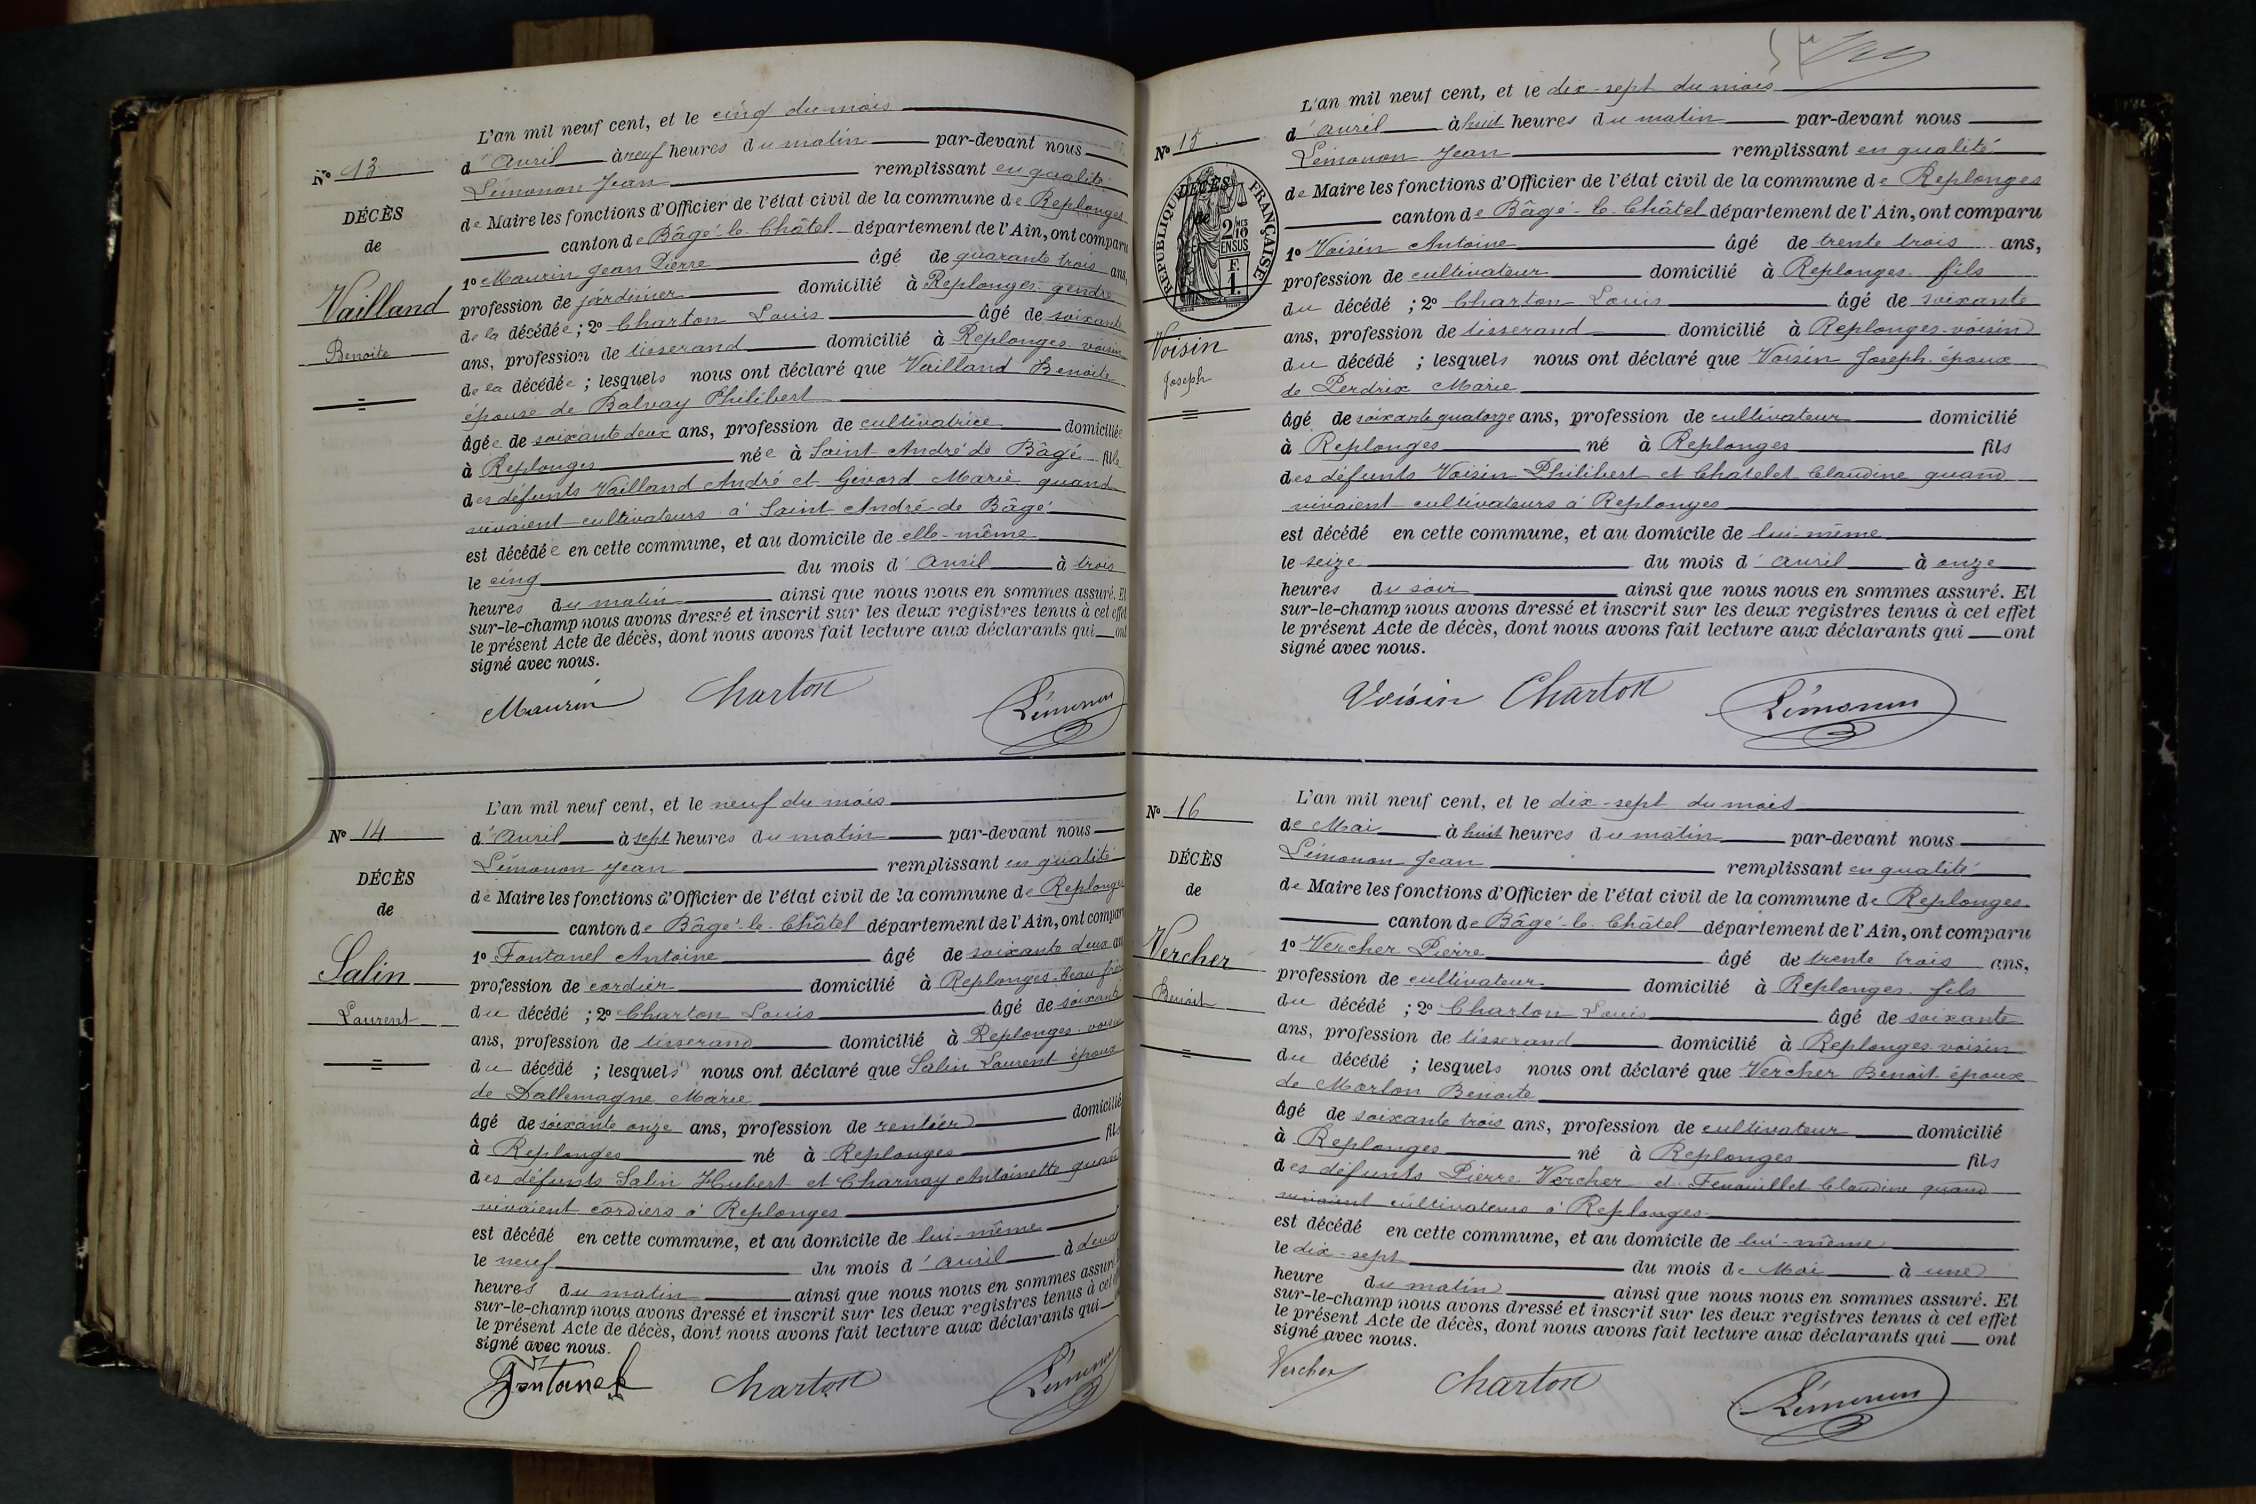 L'an mil neuf cent, et le cinq du mois
N° 13
d'Avril à neuf heures du matin par-devant nous
Lémonon Jean remplissant en qualité
DÉCÈS
de Maire les fonctions d'Officier de l'état civil de la commune de Replonges
de
canton de Bâgé-le-Châtel département de l'Ain, ont comparu
1° Maurin Jean Pierre âgé de quarante trois ans,
Vailland
profession de jardinier domicilié à Replonges gendre
de la décédée ; 2° Charton Louis âgé de soixante
Benoite
ans, profession de tisserand domicilié à Replonges voisin
de la décédée ; lesquels nous ont déclaré que Vailland Benoite
épouse de Balvay Philibert
âgée de soixante deux ans, profession de cultivatrice domiciliée
à Replonges née à Saint André de Bâgé fille
des défunts Vailland André et Givord Marie quand
vivaient cultivateurs à Saint André de Bâgé
est décédée en cette commune, et au domicile de elle-même
le cinq du mois d'avril à trois
heures du matin ainsi que nous nous en sommes assuré. Et
sur-le-champ nous avons dressé et inscrit sur les deux registres tenus à cet effet
le présent Acte de décès, dont nous avons fait lecture aux déclarants qui ont
signé avec nous.
Maurin Charton Lémonon
L'an mil neuf cent, et le neuf du mois
N° 14
d'Avril à sept heures du matin par-devant nous
Lémonon Jean remplissant en qualité
DÉCÈS
de Maire les fonctions d'Officier de l'état civil de la commune de Replonges
de
canton de Bâgé-le-Châtel département de l'Ain, ont comparu
1° Fontanel Antoine âgé de soixante deux ans
Salin
profession de cordier domicilié à Replonges beau frère
du décédé ; 2° Charton Louis âgé de soixante
Laurent
ans, profession de tisserand domicilié à Replonges voisin
du décédé ; lesquels nous ont déclaré que Salin Laurent époux
de Dallemagne Marie
âgé de soixante onze ans, profession de rentier domicilié
à Replonges né à Replonges fils
des défunts Salin Hubert et Charnay Antoinette quand
vivaient cordiers à Replonges
est décédé en cette commune, et au domicile de lui-même
le neuf du mois d'avril à deux
heures du matin ainsi que nous nous en sommes assuré.
sur-le-champ nous avons dressé et inscrit sur les deux registres tenus à cet
le présent Acte de décès, dont nous avons fait lecture aux déclarants qui
signé avec nous.
Fontanel Charton Lémonon
L'an mil neuf cent, et le dix-sept du mois
N° 15
d'avril à huit heures du matin par-devant nous
Lémonon Jean remplissant en qualité
DÉCÈS
de
RÉPUBLIQUE FRANÇAISE
2/10 EN SUS
F. 1.
de Maire les fonctions d'Officier de l'état civil de la commune de Replonges
canton de Bâgé-le-Châtel département de l'Ain, ont comparu
1° Voisin Antoine âgé de trente trois ans,
profession de cultivateur domicilié à Replonges fils
du décédé ; 2° Charton Louis âgé de soixante
Voisin
ans, profession de tisserand domicilié à Replonges voisin
Joseph
du décédé ; lesquels nous ont déclaré que Voisin Joseph époux
de Perdrix Marie
âgé de soixante quatorze ans, profession de cultivateur domicilié
à Replonges né à Replonges fils
des défunts Voisin Philibert et Chatelet Claudine quand
vivaient cultivateurs à Replonges
est décédé en cette commune, et au domicile de lui-même
le seize du mois d'avril à onze
heures du soir ainsi que nous nous en sommes assuré. Et
sur-le-champ nous avons dressé et inscrit sur les deux registres tenus à cet effet
le présent Acte de décès, dont nous avons fait lecture aux déclarants qui ont
signé avec nous.
Voisin Charton Lémonon
L'an mil neuf cent, et le dix-sept du mois
N° 16
de Mai à huit heures du matin par-devant nous
Lémonon Jean remplissant en qualité
DÉCÈS
de Maire les fonctions d'Officier de l'état civil de la commune de Replonges
de
canton de Bâgé-le-Châtel département de l'Ain, ont comparu
1° Vercher Pierre âgé de trente trois ans,
Vercher
profession de cultivateur domicilié à Replonges fils
Benoit
du décédé ; 2° Charton Louis âgé de soixante
ans, profession de tisserand domicilié à Replonges voisin
du décédé ; lesquels nous ont déclaré que Vercher Benoit époux
de Morlon Benoite
âgé de soixante trois ans, profession de cultivateur domicilié
à Replonges né à Replonges fils
des défunts Pierre Vercher et Fenouillet Claudine quand
vivaient cultivateurs à Replonges
est décédé en cette commune, et au domicile de lui-même
le dix-sept du mois de Mai à une
heure du matin ainsi que nous nous en sommes assuré. Et
sur-le-champ nous avons dressé et inscrit sur les deux registres tenus à cet effet
le présent Acte de décès, dont nous avons fait lecture aux déclarants qui ont
signé avec nous.
Vercher Charton Lémonon